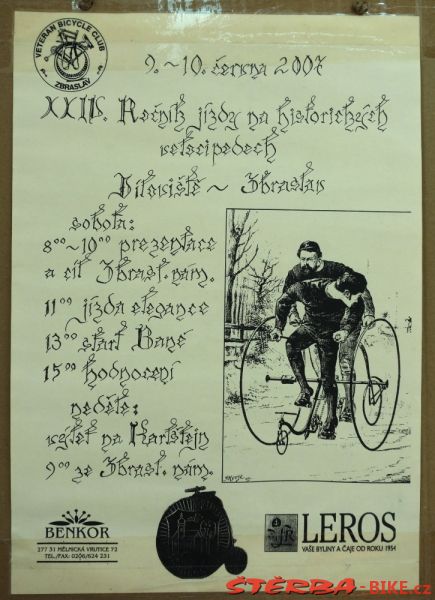 VETERAN BICYCLE CLUB
ZBRASLAV
9.~10. června 2007
XXIII. Ročník jízdy na historických
velocipedech
Jíloviště ~ Zbraslav
sobota:
8⁰⁰~10⁰⁰ prezentace
a cíl Zbrasl. nám.
11⁰⁰ jízda elegance
13⁰⁰ start Baně
15⁰⁰ hodnocení
neděle:
výlet na Karlštejn
9⁰⁰ ze Zbrasl. nám.
BENKOR
277 31 MĚLNICKÁ VRUTICE 72
TEL./FAX: 0206/624 231
LEROS
VAŠE BYLINY A ČAJE OD ROKU 1954
ŠTĚRBA-BIKE.cz